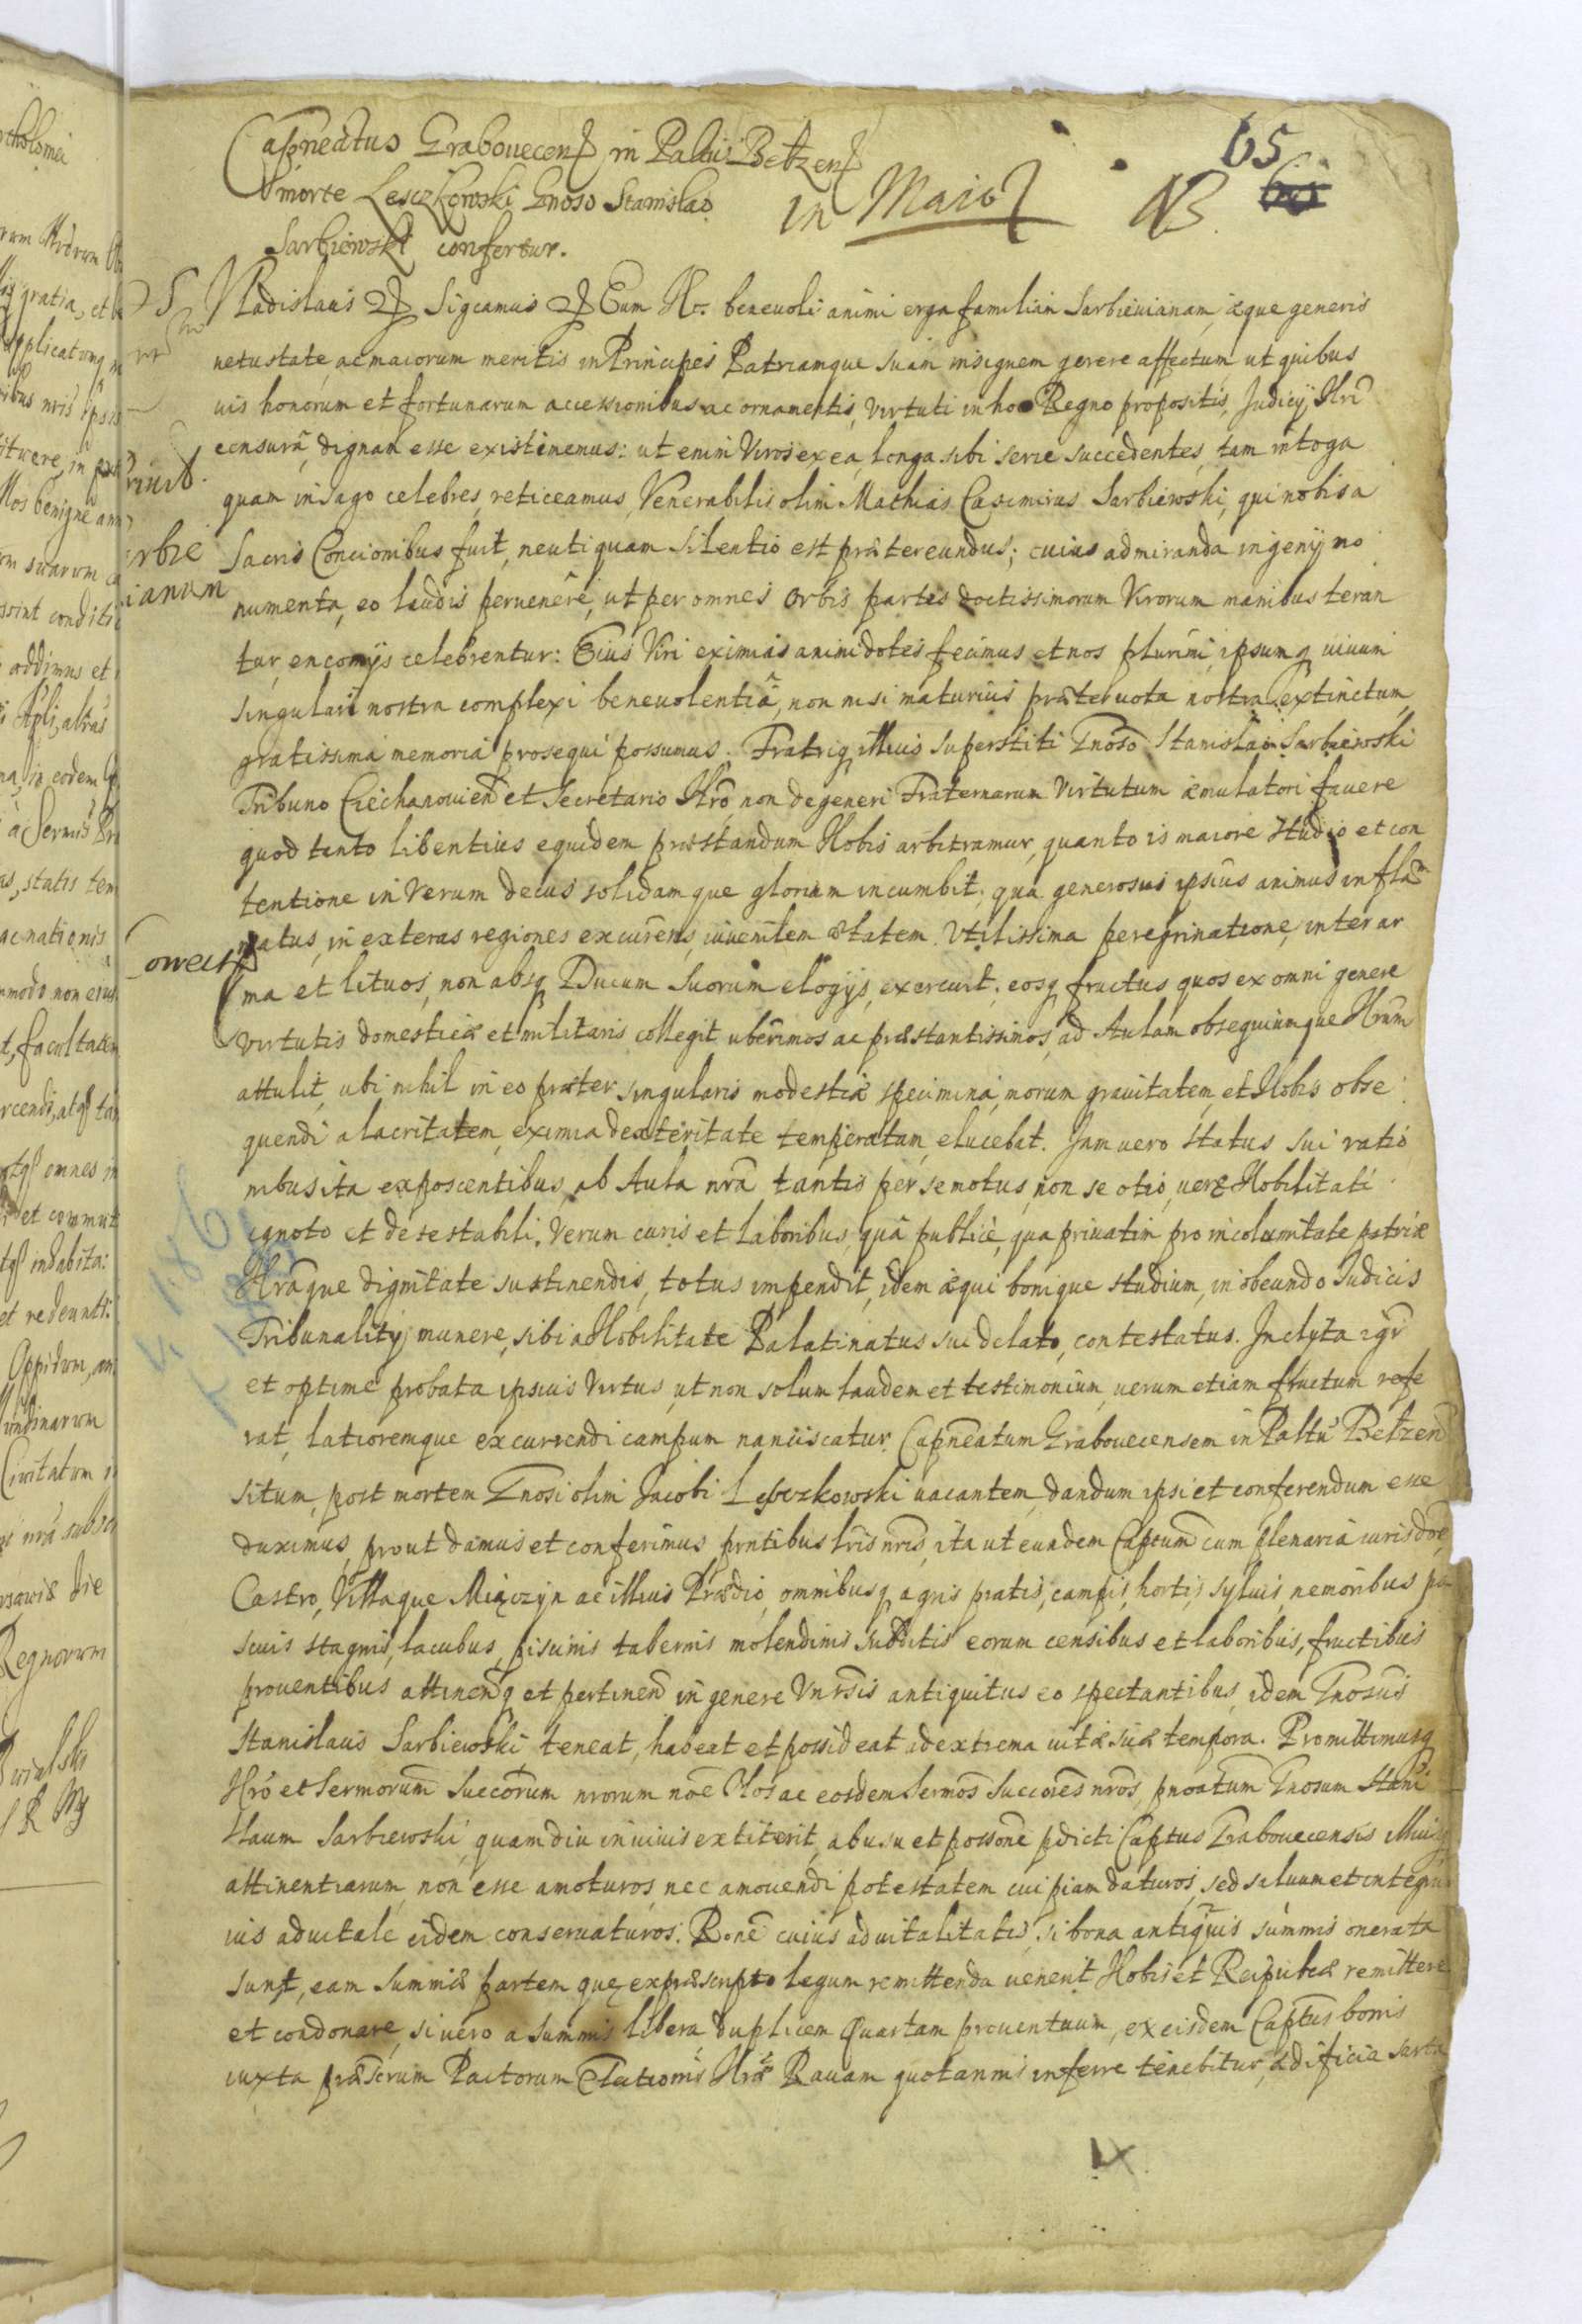 65
Capneatus Grabouecens in Paltu Betzens
morte Lesczkowski Gnoso Stanislao
in Maio NB
Sarbiewski confertur.
Vladislaus Sigcamus Eum Nos beneuoli animi erga familiam Sarbieuianam, æque generis
uetustate, ac maiorum meritis in Principes Patriamque suam insignem gerere affectum ut quibus
uis honorum et fortunarum accessionibus ac ornamentis, virtuti in hoc Regno propositis, Judicij Nri
censurâ, dignam esse existimemus: ut enim Viros ex ea, longa sibi serie succedentes, tam in toga
quam in sago celebres, reticeamus, Venerabilis olim Mathias Casimirus Sarbiewski, qui nobis a
Sacris Concionibus fuit, neutiquam silentio est prætereundus; cuius admiranda ingenij mo
numenta, eo laudis peruenêre, ut per omnes Orbis partes doctissimorum Virorum manibus teran
tur, encomijs celebrentur: Eius Viri eximias animi dotes fecimus et nos plurimi, ipsumq uiuum
singulari nostra complexi beneuolentiâ, non nisi maturius præter uota nostra extinctum,
gratissima memoria prosequi possumus. Fratriq illius superstiti Gnoso Stanislao Sarbiewski
Tribuno Ciechanouien et Secretario Nro, non degeneri Fraternarum Virtutum æmulatori fauere
quod tanto libentius equidem præstandum Nobis arbitramur, quanto is maiore studio et con
tentione in Verum decus solidamque gloriam incumbit, qua generosus ipsius animus infla
matus, in exteras regiones excurrens, iuuenilem ætatem Vtilissima peregrinatione, inter ar
ma et lituos, non absq Ducum suorum elogijs, exercuit, eosq fructus quos ex omni genere
virtutis domesticæ et militaris collegit uberrimos ac præstantissimos, ad Aulam obsequiumque Nrum
attulit, ubi nihil in eo præter singularis modestiæ specimina, morum grauitatem, et Nobis obse
quendi alacritatem, eximia dexteritate temperatam, elucebat. Jam uero status sui ratio
nibus ita exposcentibus, ab Aula nra tantis per semotus, non se otio, ueræ Nobilitati
ignoto et detestabili, Verum curis et laboribus, quâ publicè, qua priuatim pro incolumitate patriæ
Nraque dignitate sustinendis, totus impendit, idem æqui bonique studium, in obeundo Judicis
Tribunalitij munere, sibi a Nobilitate Palatinatus sui delato, contestatus. Inclyta igr
et optime probata ipsius Virtus, ut non solum laudem et testimonium, uerum etiam fructum refe
rat, latioremque excurrendi campum nanciscatur, Capneatum Grabouecensem in Paltu Betzen
situm, post mortem Gnosi olim Jacobi Lesczkowski uacantem, dandum ipsi et conferendum esse
duximus, prout damus et conferimus, pntibus lris nris, ita ut eundem Captum cum plenaria iurisdoe,
Castro, Villaque Miączyn ac illius Prædio, omnibusq agris pratis, campis, hortis, syluis, nemoribus pa
scuis stagnis, lacubus, piscinis tabernis molendinis subditis eorum censibus et laboribus, fructibus
prouentibus attinen q et pertinen in genere Vnrsis antiquitus eo spectantibus, idem Gnosus
Stanislaus Sarbiewski teneat, habeat et possideat ad extrema uitæ suæ tempora. Promittimusq
Nro et Sermorum Succorum nrorum noe Nos ac eosdem Sermos Succores nros, pnoatum Gnosum Stani
slaum Sarbiewski, quamdiu in uiuis extiterit, ab usu et possone pdicti Captus Grabouecensis illiusq
attinentiarum, non esse amoturos, nec amouendi potestatem cuipiam daturos, sed saluum et integrum
ius aduitale eidem conseruaturos. Rone cuius aduitalitatis, si bona antiquis summis onerata
sunt, eam summæ partem quæ ex præscripto legum remittenda uenerit Nobis et Reipublicæ remittere
et condonare, si uero a summis libera, duplicem Quartam prouentuum, ex eisdem Captus bonis
iuxta præscrum Pactorum Electionis Nræ Rauam quotannis inferre tenebitur, ædificia sarta